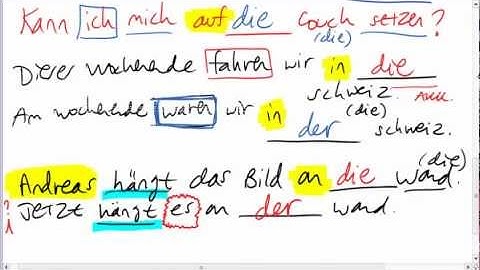 Kann ich mich auf die Couch setzen?
(die)
Dieses Wochenende fahren wir in die
Schweiz. Akk.
(die)
Am Wochenende waren wir in der Schweiz.
(die)
Andreas hängt das Bild an die Wand.
Jetzt hängt es an der Wand.